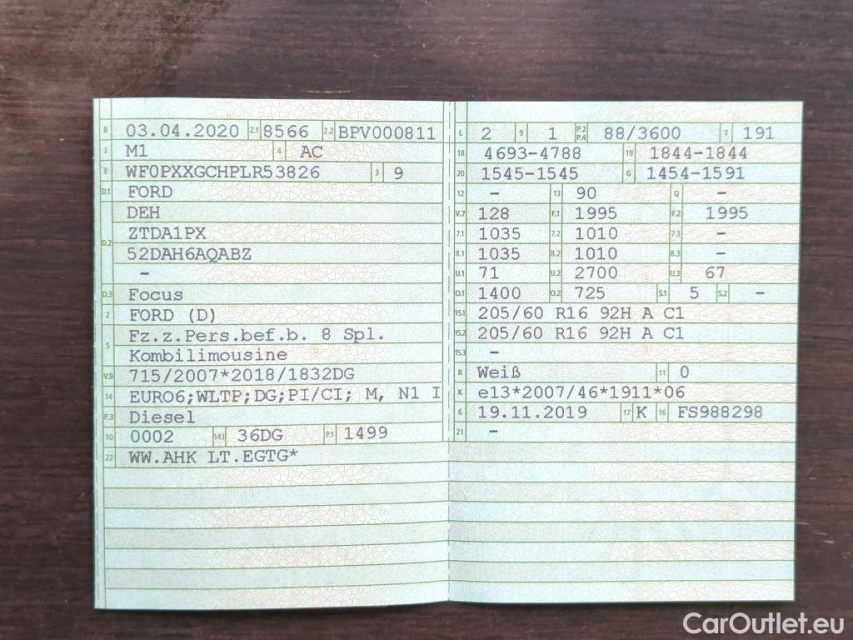 B 03.04.2020 2.1 8566 2.2 BPV000811
J M1 4 AC
E WF0PXXGCHPLR53826 3 9
D.1 FORD
DEH
D.2 ZTDA1PX
52DAH6AQABZ
–
D.3 Focus
2 FORD (D)
5 Fz.z.Pers.bef.b. 8 Spl.
Kombilimousine
V.9 715/2007*2018/1832DG
14 EURO6;WLTP;DG;PI/CI; M, N1 I
P.3 Diesel
10 0002 14.1 36DG P.1 1499
22 WW.AHK LT.EGTG*
L 2 9 1 P.2 P.4 88/3600 T 191
18 4693-4788 19 1844-1844
20 1545-1545 G 1454-1591
12 – 13 90 Q –
V.7 128 F.1 1995 F.2 1995
7.1 1035 7.2 1010 7.3 –
8.1 1035 8.2 1010 8.3 –
U.1 71 U.2 2700 U.3 67
O.1 1400 O.2 725 S.1 5 S.2 –
15.1 205/60 R16 92H A C1
15.2 205/60 R16 92H A C1
15.3 –
R Weiß 11 0
K e13*2007/46*1911*06
6 19.11.2019 17 K 16 FS988298
21 –
CarOutlet.eu